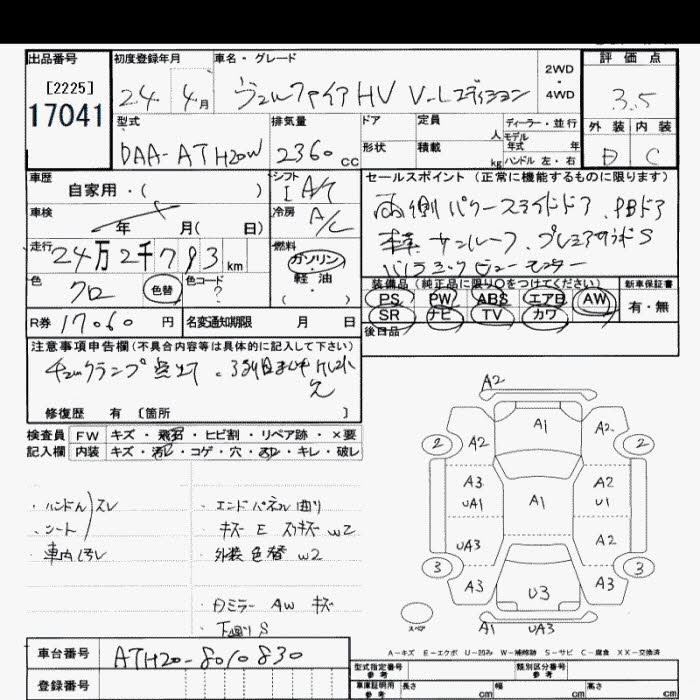 出品番号 初度登録年月 車名・グレード 評価点
[2225] 24年 4月 ヴェルファイアHV V-Lエディション 2WD・4WD 3.5
17041
型式 排気量 ドア 定員 人 ディーラー・並行 外装 内装
DAA-ATH20W 2360cc 形状 積載 kg モデル年式 年 D C
ハンドル 左・右
車歴 自家用・( ) シフト I A/T セールスポイント(正常に機能するものに限ります)
車検 年 月( 日) 冷房 A/C 両側パワースライドドア、PBドア
走行 24万2千793km 燃料 ガソリン・軽油・( ) サンルーフ、プレミアサウンドS
色 クロ 色替 色コード ? パノラミックビューモニター
装備品(純正品に限り○をつけてください) 新車保証書
PS PW ABS エアB AW 有・無
SR ナビ TV カワ
R券 17060円 名変通知期限 月 日 後日品
注意事項申告欄(不具合内容等は具体的に記入して下さい)
修復歴 有 [箇所
検査員 FW キズ・飛石・ヒビ割・リペア跡・×要
記入欄 内装 キズ・汚れ・コゲ・穴・キレ・破レ
・ハンドルスレ ・エンドパネル曲り
・シート ・キズ E スリキズ W2
・車内汚レ ・外装色替 W2
・Dミラー AW キズ
・下廻りS
A2
A1
A2 A2
2 2
A3 A2
UA1 A1 U1
UA3 A2
3 3
A3 U3 A3
スペア A1 UA3
A-キズ E-エクボ U-凹み W-補修跡 S-サビ C-腐食 XX-交換済
車台番号 ATH20-8010830 型式指定番号 参考 類別区分番号 参考
登録番号 車庫証明用 参考 長さ cm 幅 cm 高さ cm